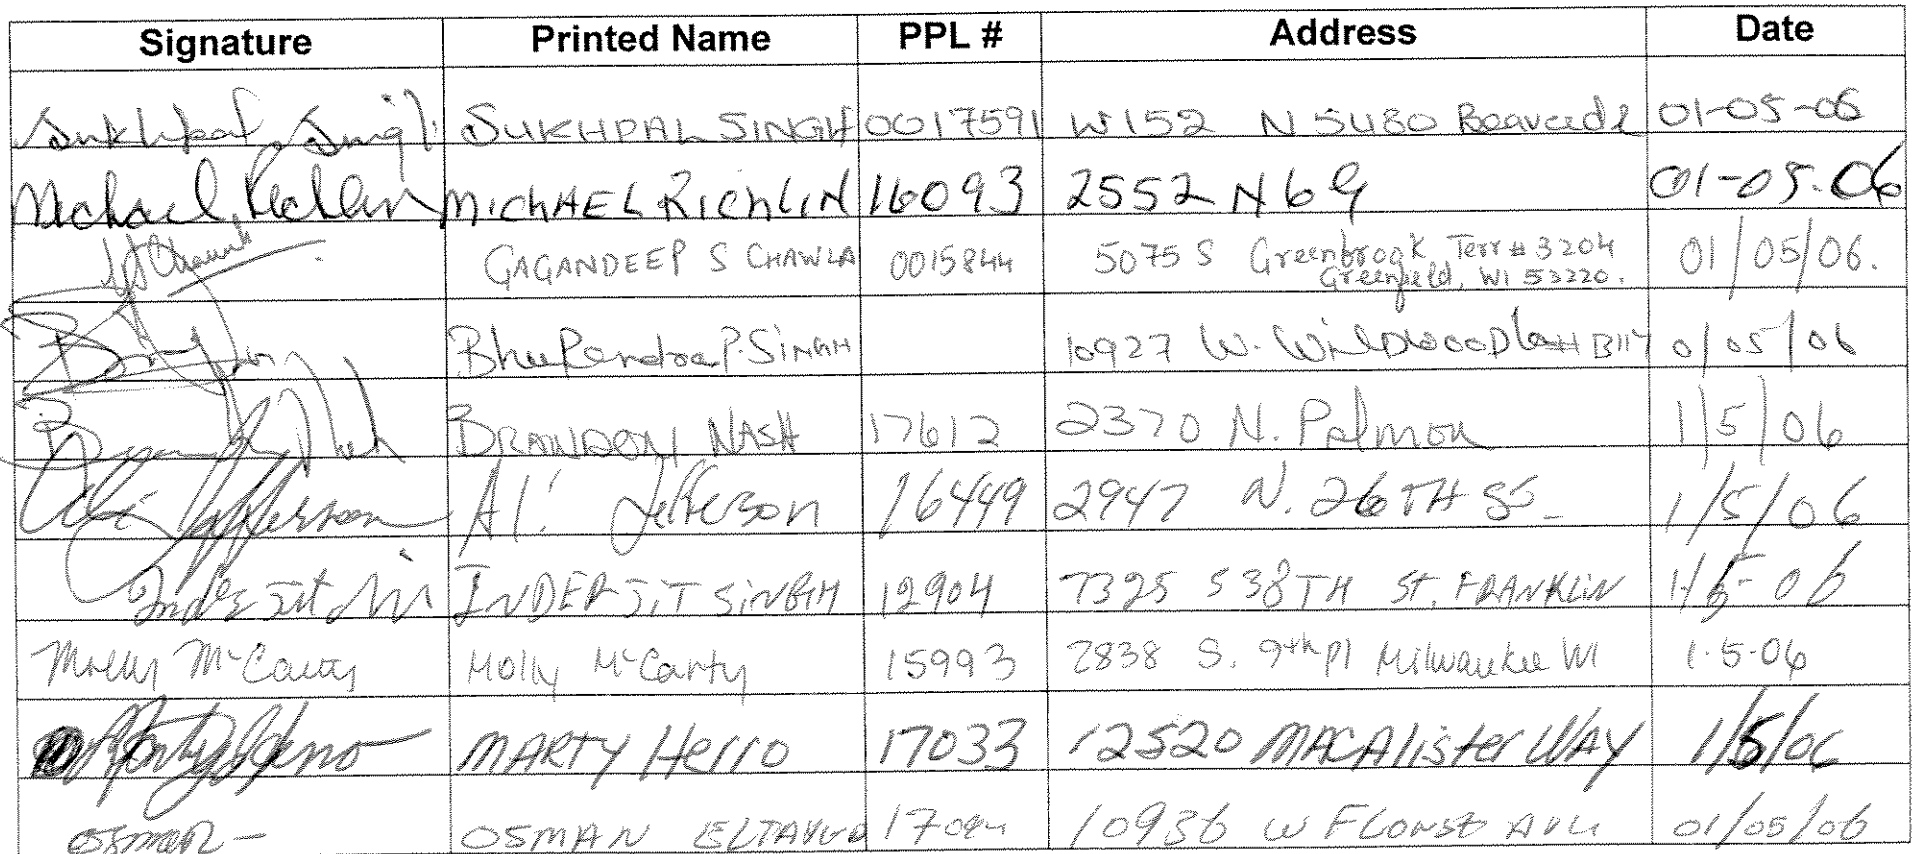 Signature Printed Name PPL # Address Date
Sukhpal Singh SUKHPAL SINGH 0017591 W152 N 5480 01-05-06
Michael Richlin MICHAEL RICHLIN 16093 2552 N 69 01-05-06
GAGANDEEP S CHAWLA 0015844 5075 S Greenbrook Terr # 3204 01/05/06.
Greenfield, WI 53220.
P. SINGH 10927 W. WILDWOOD 01/05/06
BRANDON NASH 17612 2370 N. 1/5/06
Jefferson Al. Jefferson 16449 2947 N. 26TH 1/5/06
INDERJIT SINGH 12904 7325 S 38TH ST. FRANKLIN 06
Molly McCarty Molly McCarty 15993 2838 S. 9th pl Milwaukee WI 1-5-06
MARTY Herro 17033 12520 MACAlister WAY 1/5/06
OSMAN 10936 W 01/05/06